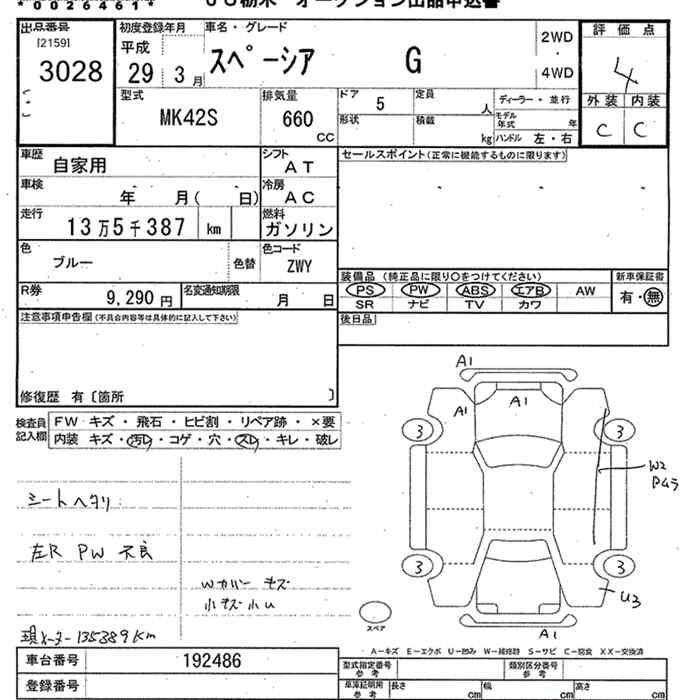 *00264161*
JU栃木 オークション出品申込書
出品番号
[2159]
3028
初度登録年月
平成
29 3 月
車名・グレード
スペーシア G
2WD
・
4WD
評価点
4
外装 内装
C C
型式
MK42S
排気量
660
CC
ドア
5
定員
人
ディーラー・並行
形状
積載
kg
モデル年式
年
ハンドル 左・右
車歴
自家用
シフト
AT
セールスポイント(正常に機能するものに限ります)
車検
年 月( 日)
冷房
AC
走行
13万5千387 km
燃料
ガソリン
色
ブルー
色替
色コード
ZWY
装備品 (純正品に限り○をつけてください)
新車保証書
PS PW ABS エアB AW
有・無
SR ナビ TV カワ
R券
9,290 円
名変通知期限
月 日
注意事項申告欄(不具合内容等は具体的に記入して下さい)
後日品
修復歴 有〔箇所 〕
検査員記入欄
FW キズ・飛石・ヒビ割・リペア跡・×要
内装 キズ・汚れ・コゲ・穴・スレ・キレ・破レ
シートヘタリ
左R PW 不良
Wカバー キズ
小キズ小U
現メーター135389km
A1
A1
A1
3
3
W2
Pムラ
3
3
U3
スペア
A1
A-キズ E-エクボ U-凹み W-補修跡 S-サビ C-腐食 XX-交換済
車台番号
192486
登録番号
型式指定番号
参考
類別区分番号
参考
車庫証明用
参考
長さ
cm
幅
cm
高さ
cm